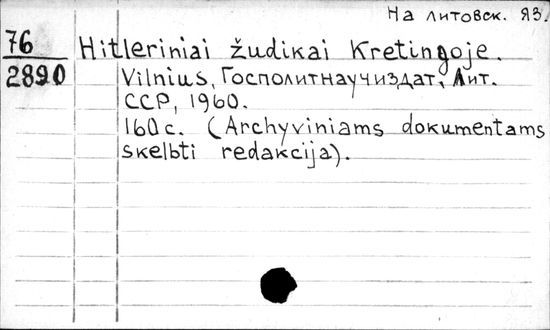 На литовск. яз.
76
2890
Hitleriniai žudikai Kretingoje.
Vilnius, Госполитнаучиздат, Лит.
ССР, 1960.
160 с. (Archyviniams dokumentams
skelbti redakcija).